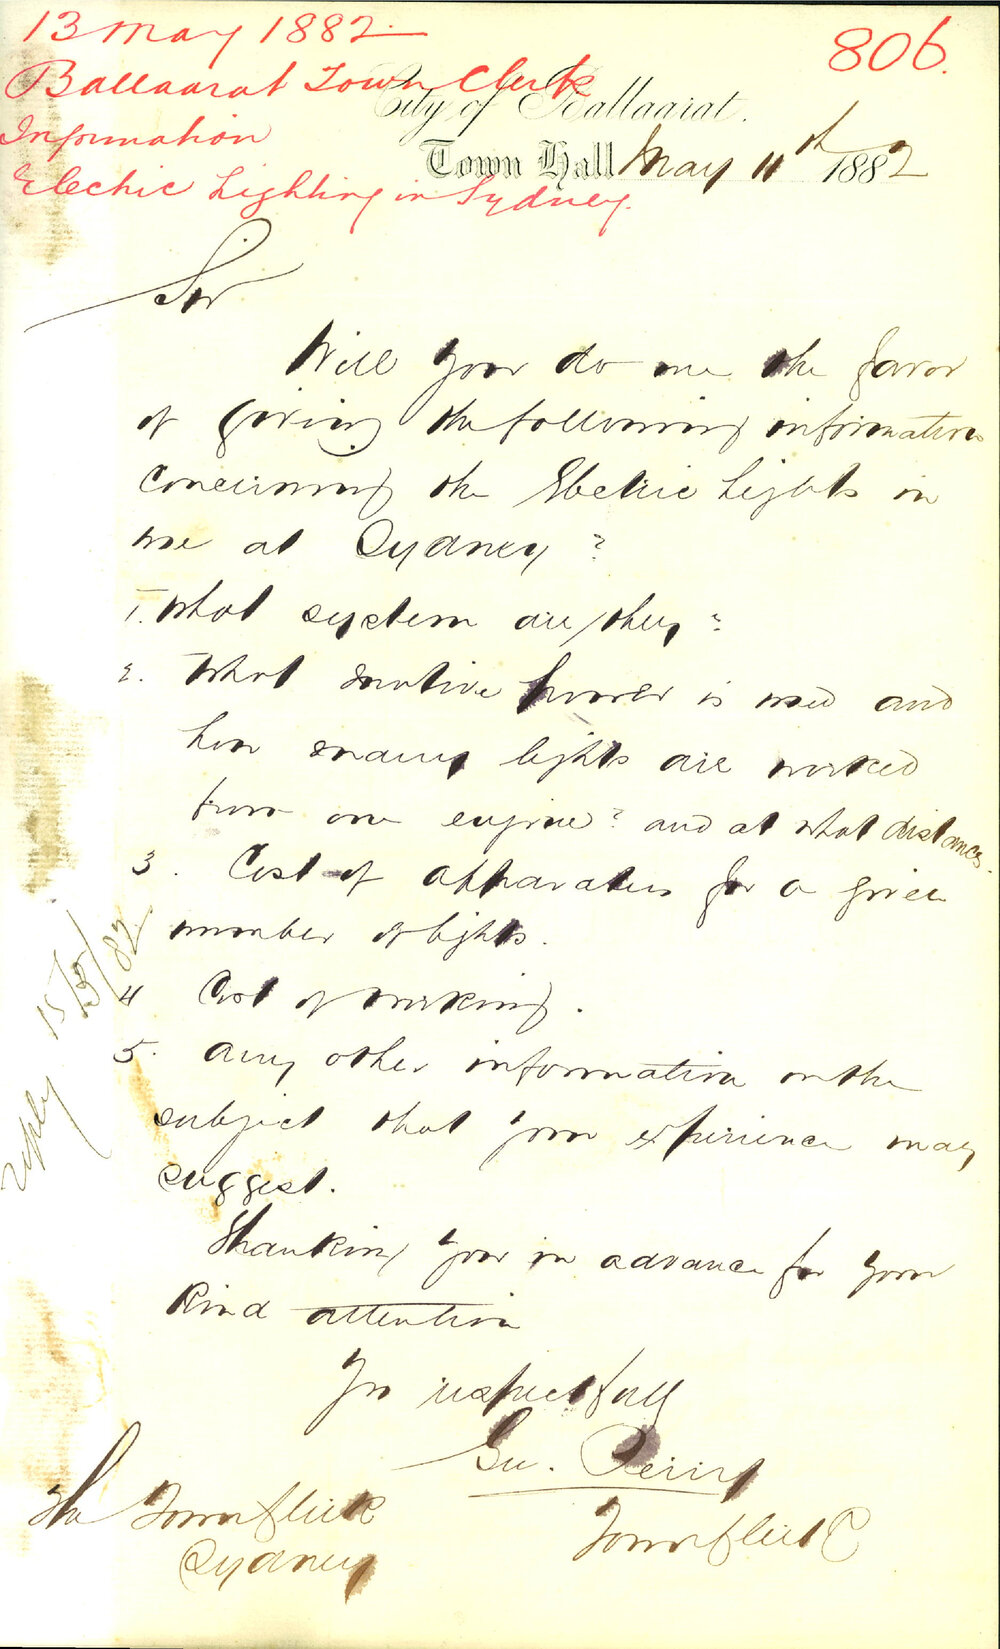 13 May 1882
806.
Ballaarat Town Clerk
Information
Electric Lighting in Sydney.
City of Ballaarat.
Town Hall May 11th 1882
Sir
Will you do me the favor
of giving the following information
concerning the Electric Lights in
use at Sydney?
1. What system are they?
2. What motive power is used and
how many lights are worked
from one engine? and at what distances.
3. Cost of apparatus for a given
number of lights.
4 Cost of working.
5. Any other information on the
subject that your experience may
suggest.
Thanking you in advance for your
kind attention
Yrs respectfull
Geo. Perry
Town Clerk
The Town Clerk
Sydney
reply 15/5/82